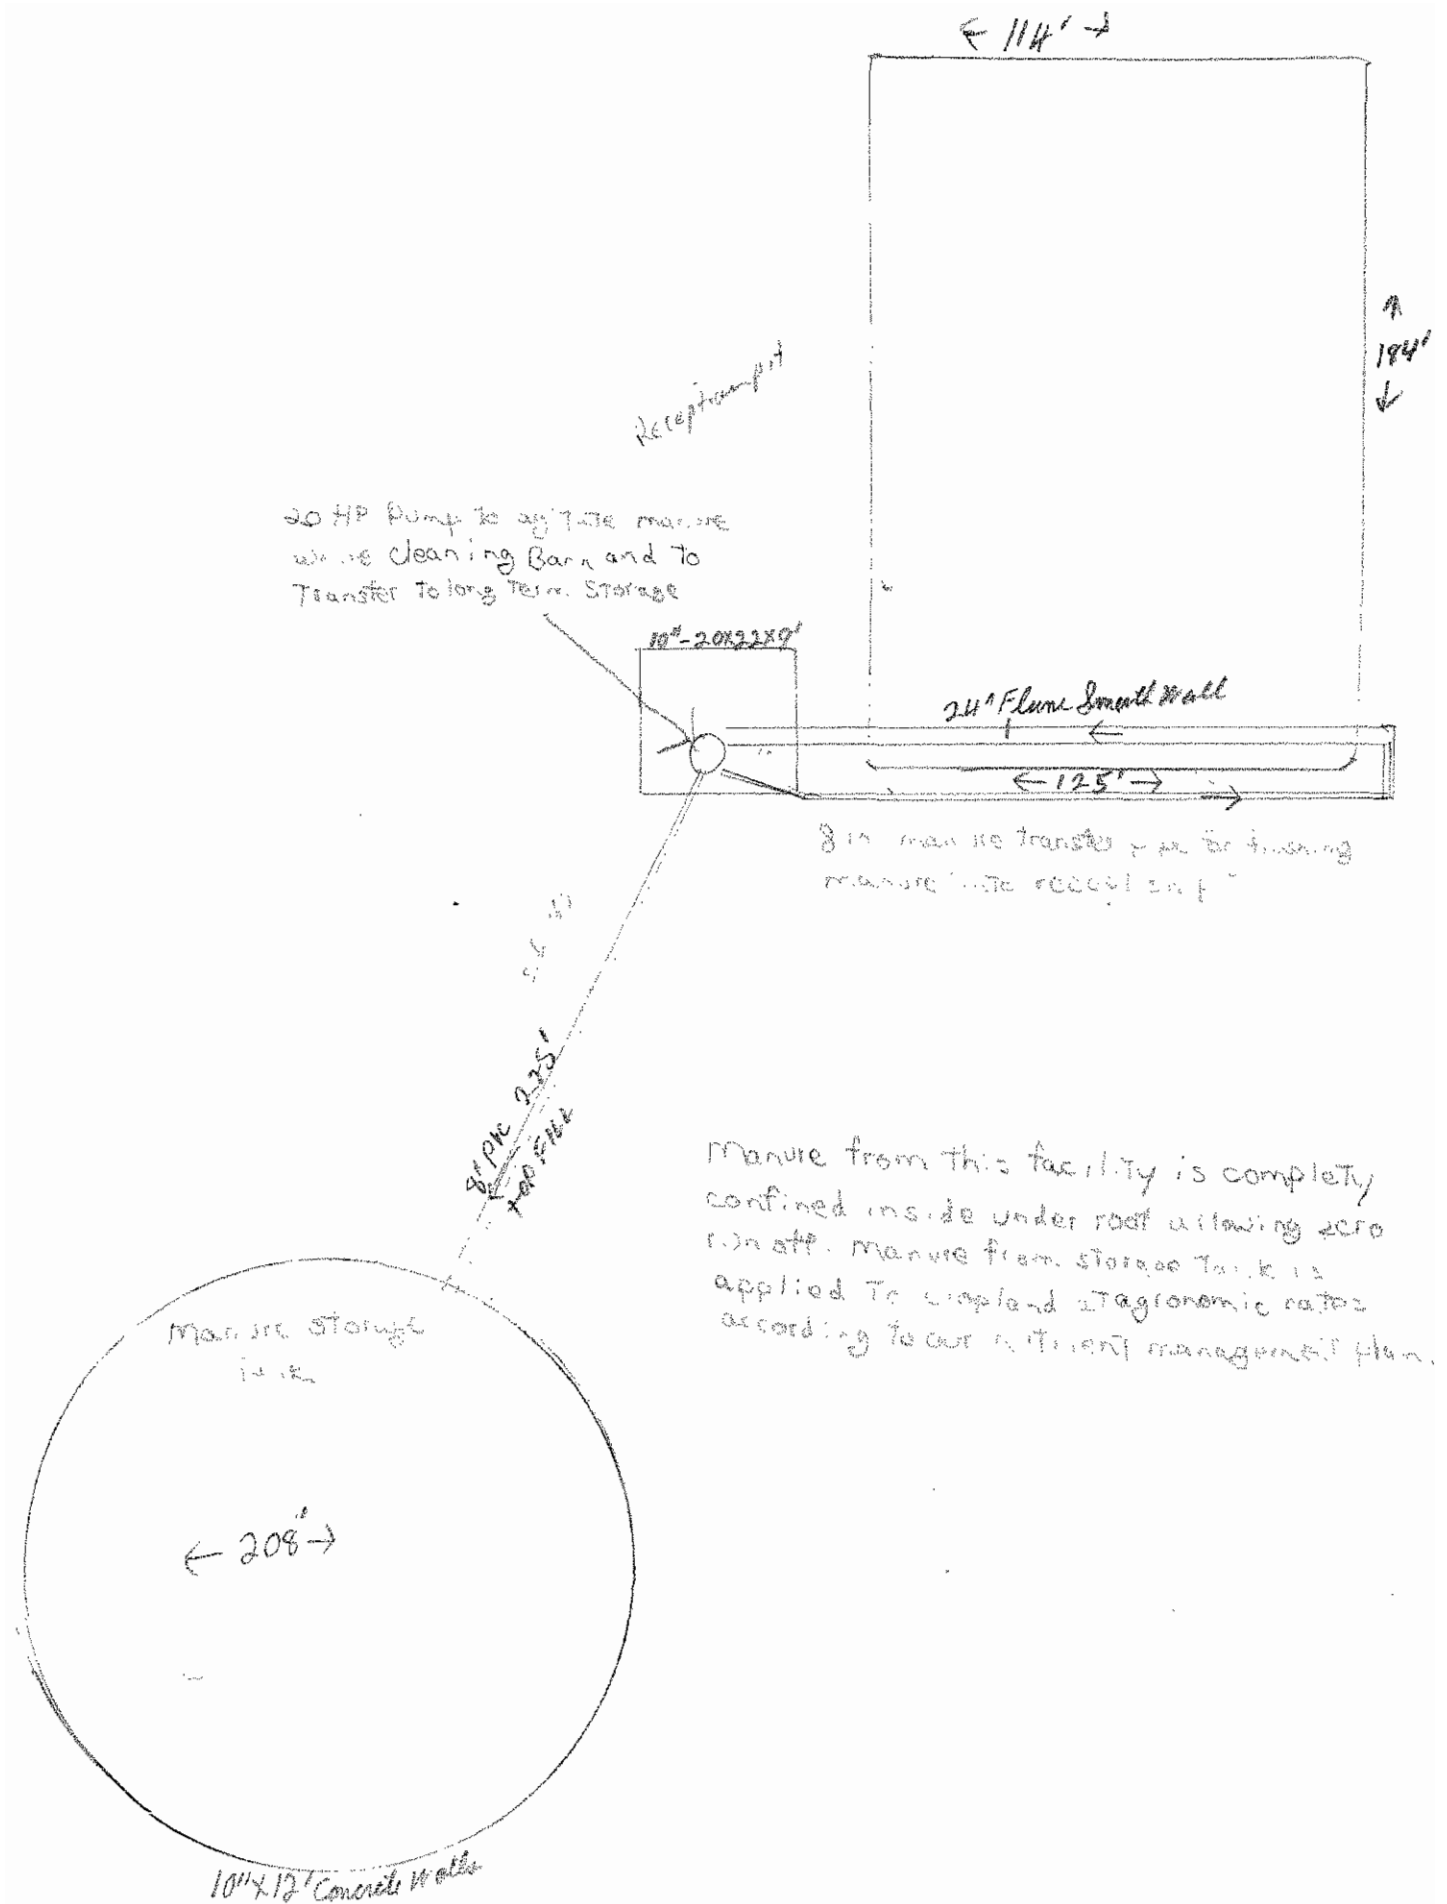 ← 114' →
↑
184'
↓
Reception pit
20 HP Pump to agitate manure
while cleaning Barn and to
Transfer to long Term Storage
10"-20x22x9'
24" Flume Smooth Wall
← 125' →
8 in manure transfer pipe for flushing
manure into
8" pvc 225'
Manure from this facility is complety
confined inside under roof allowing zero
run off. Manure from storage Tank is
applied To cropland at agronomic rates
according to our nutrient management plan.
Manure storage
← 208' →
10"x12' Concrete Walls